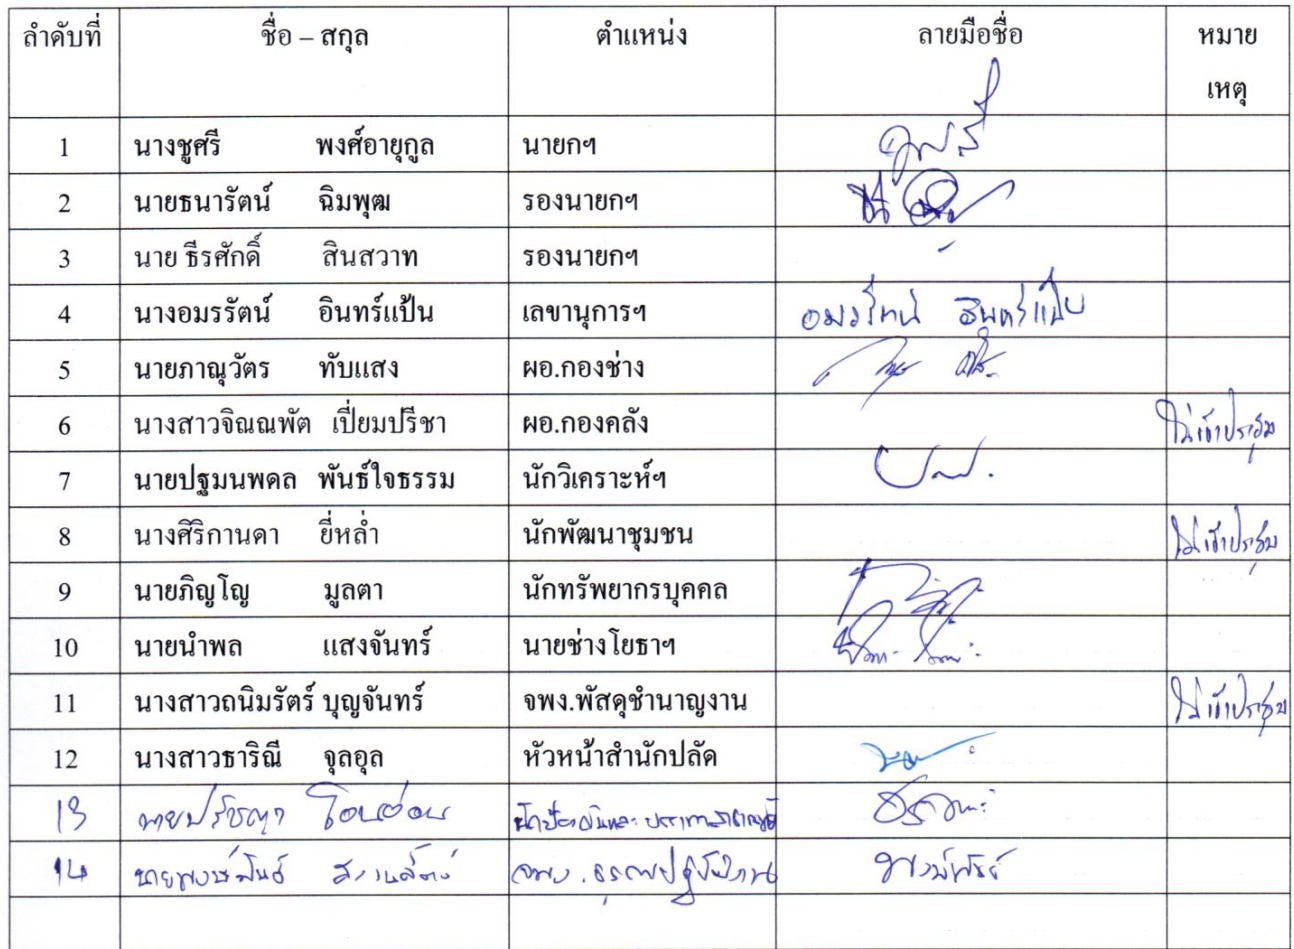 ลำดับที่ ชื่อ – สกุล ตำแหน่ง ลายมือชื่อ หมาย
เหตุ
1 นางชูศรี พงศ์อายุกูล นายกฯ
2 นายธนารัตน์ ฉิมพุฒ รองนายกฯ
3 นาย ธีรศักดิ์ สินสวาท รองนายกฯ
4 นางอมรรัตน์ อินทร์แป้น เลขานุการฯ อมรรัตน์ อินทร์แป้น
5 นายภาณุวัตร ทับแสง ผอ.กองช่าง
6 นางสาวจิณณพัต เปี่ยมปรีชา ผอ.กองคลัง ไม่เข้าประชุม
7 นายปฐมนพดล พันธ์ใจธรรม นักวิเคราะห์ฯ
8 นางศิริกานดา ยี่หล่ำ นักพัฒนาชุมชน ไม่เข้าประชุม
9 นายภิญโญ มูลตา นักทรัพยากรบุคคล
10 นายนำพล แสงจันทร์ นายช่างโยธาฯ
11 นางสาวถนิมรัตร์ บุญจันทร์ จพง.พัสดุชำนาญงาน ไม่เข้าประชุม
12 นางสาวธาริณี จุลอุล หัวหน้าสำนักปลัด
13 นายปรัชญา
14 นายพงษ์พันธ์ จพง.ธุรการปฏิบัติงาน